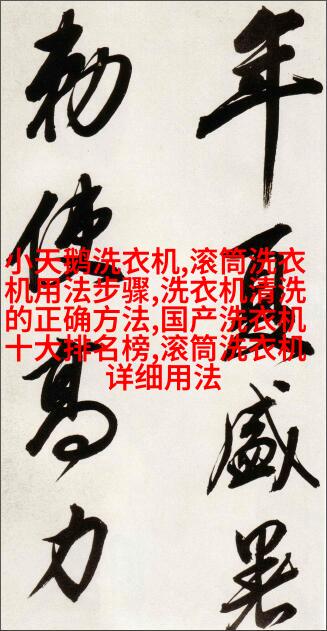 年夏盛暑
勅使高力
小天鹅洗衣机,滚筒洗衣
机用法步骤,洗衣机清洗
的正确方法,国产洗衣机
十大排名榜,滚筒洗衣机
详细用法